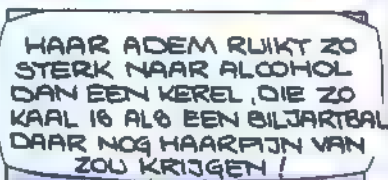 HAAR ADEM RUIKT ZO
STERK NAAR ALCOHOL
DAN EEN KEREL, DIE ZO
KAAL IS ALS EEN BILJARTBAL
DAAR NOG HAARPIJN VAN
ZOU KRIJGEN!